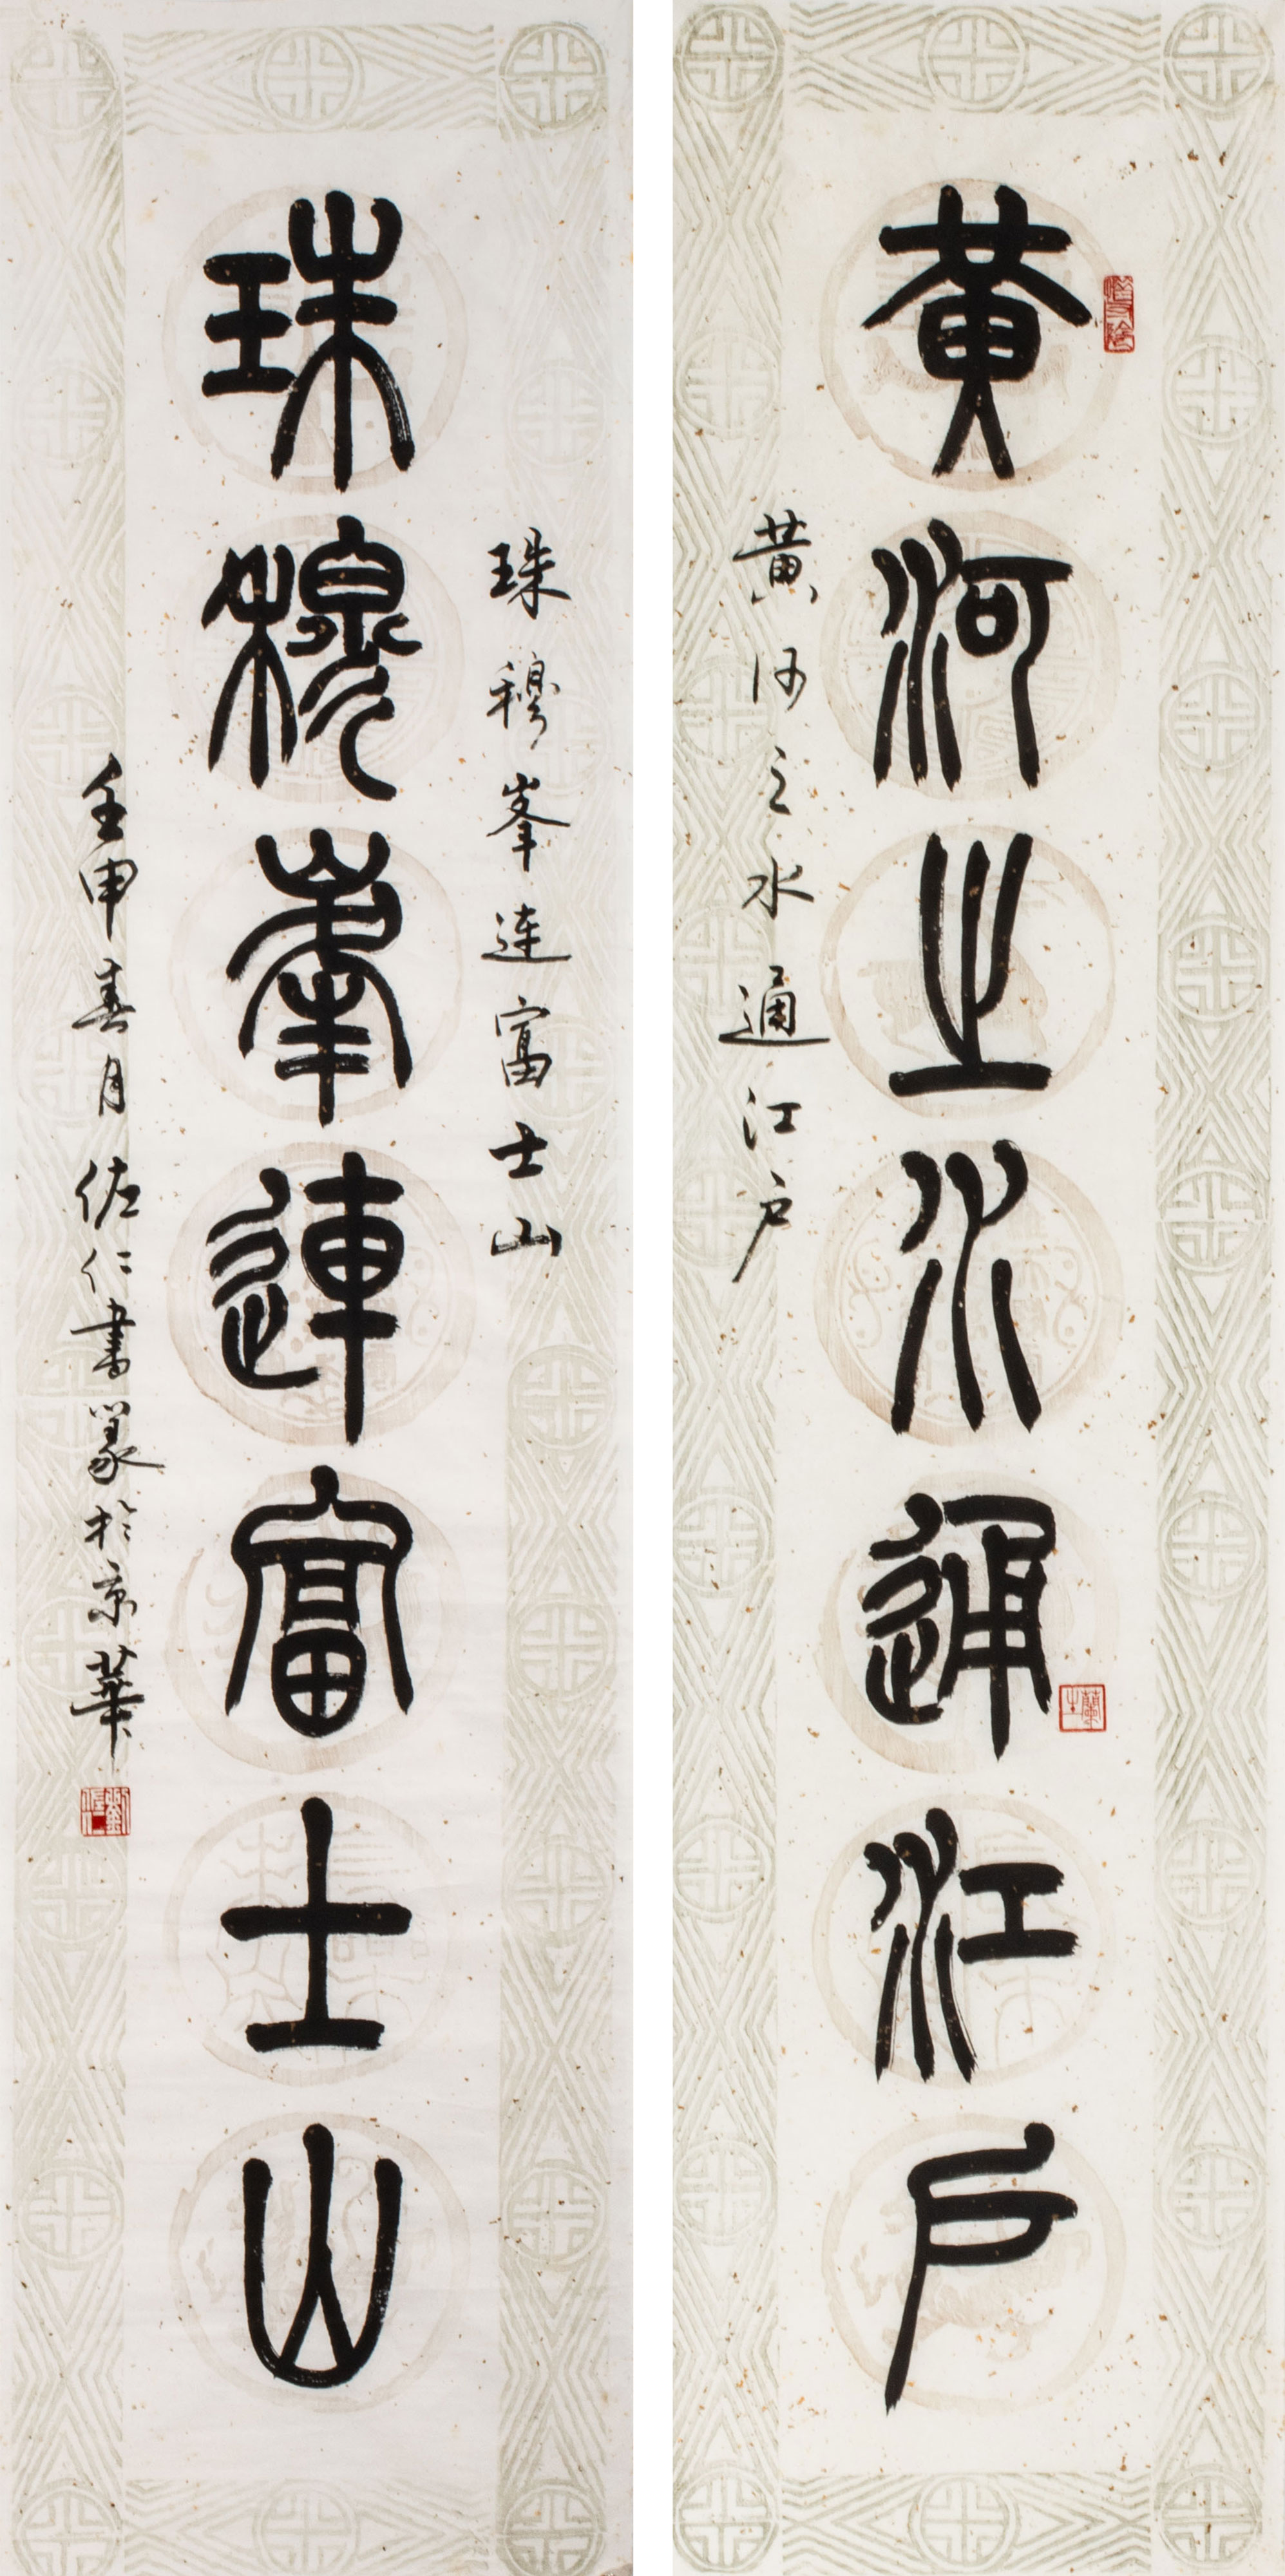 黄河之水通江戶
黄河之水通江戶
珠穆峯連富士山
珠穆峯連富士山
壬申春月佐仁書篆於京華